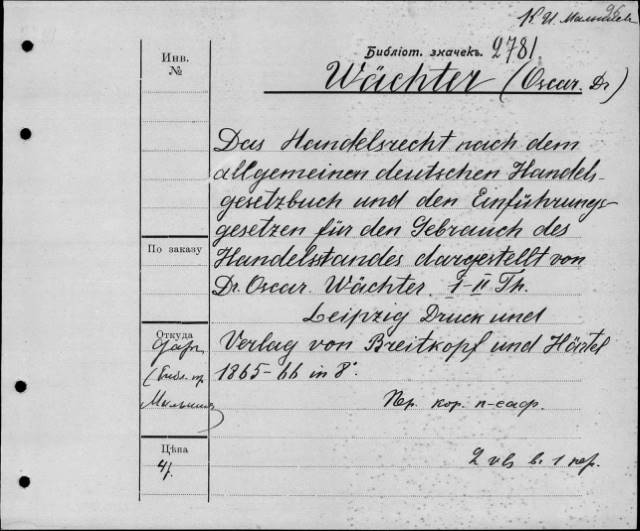 К. И. Малышев
96
Инв.
№
Библіот. значекъ. 2781
Wächter (Oscar. Dr)
Das Handelsrecht nach dem
allgemeinen deutschen Handels-
gesetzbuch und den Einführungs-
gesetzen für den Gebrauch des
По заказу
Handelsstandes dargestellt von
Dr. Oscar. Wächter. I-II Th.
Leipzig Druck und
Откуда
Verlag von Breitkopf und Härtel
Даръ
1865-66 in 8°.
(Библ. пр.
Пер. кор. п-саф.
Цѣна
4/.
2 vls въ 1 пер.